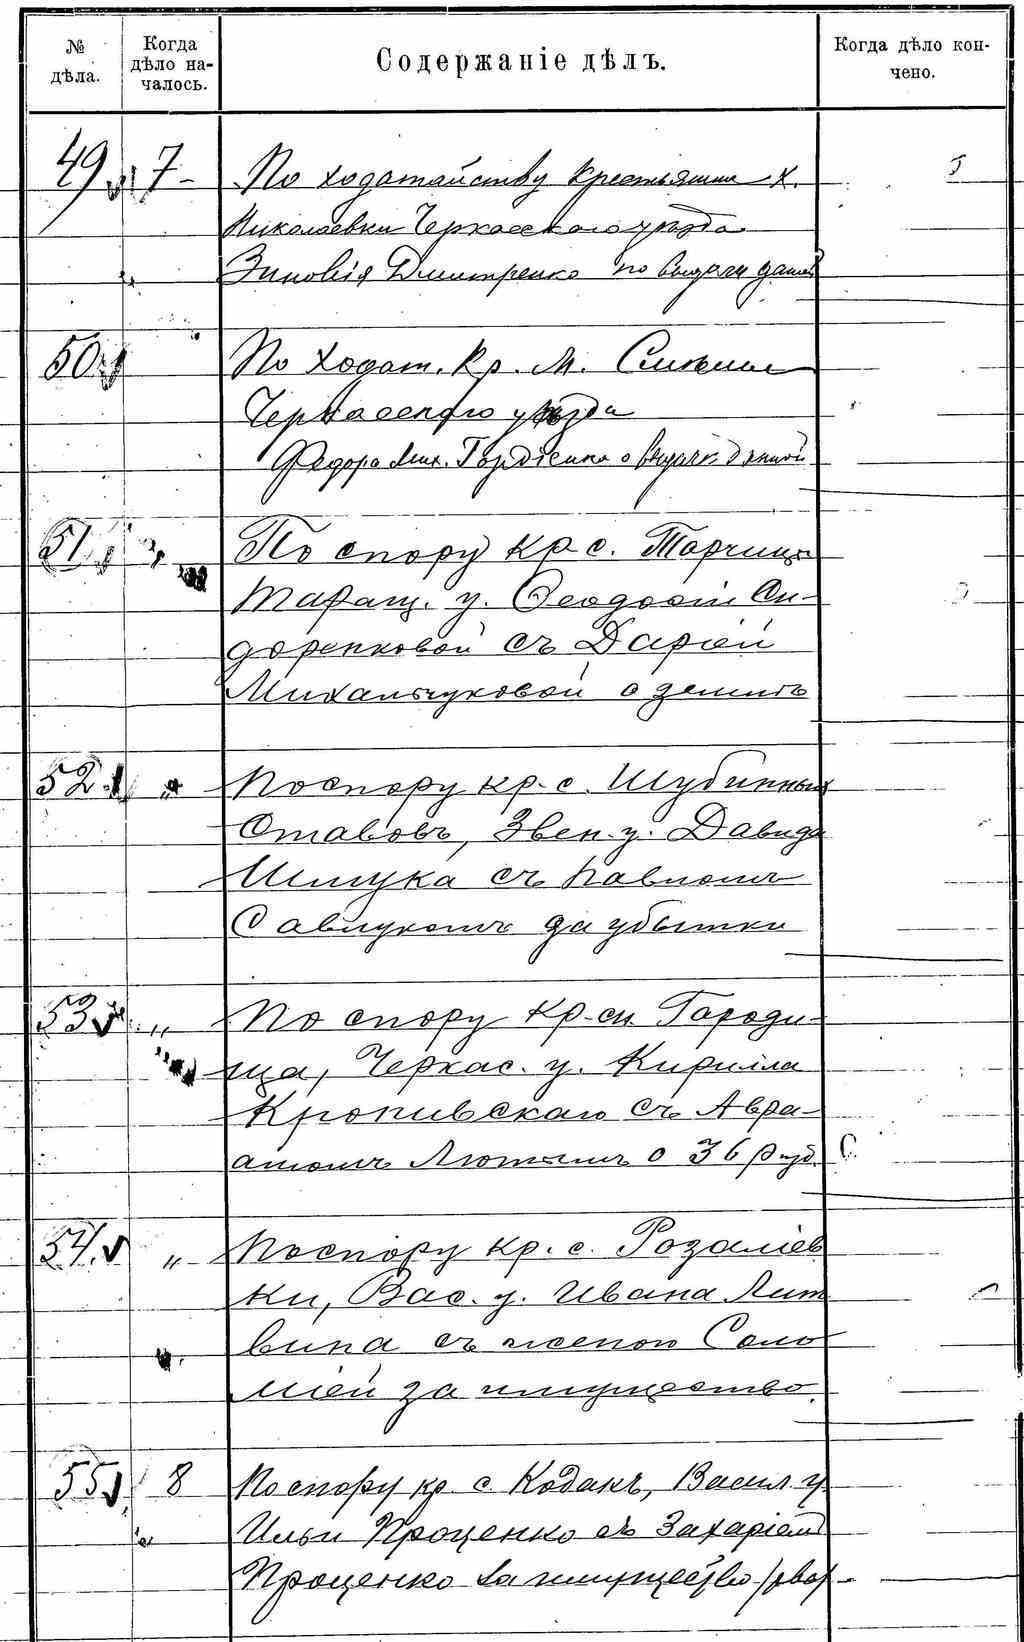 № дѣла.
Когда дѣло началось.
Содержаніе дѣлъ.
Когда дѣло кончено.
49 7 По ходатайству крестьянина х.
Николаевки Черкасскаго уѣзда
Зиновія Дмитренко по выдачи данной
50 По ходат. кр. м. Смѣлы
Черкасскаго уѣзда
Федора Мих. о выдачѣ данной
51 „ По спору кр. с. Торчицы
Таращ. у. Ѳеодосіи Си-
доренковой съ Даріей
Михальчуковой о землѣ
52 „ По спору кр. с. Шубиныхъ
Ставовъ, Звен. у. Давида
Шмука съ Павломъ
Савлукомъ за убытки
53 „ По спору кр-ен. Городи-
ща, Черкас. у. Кирилла
Кропивскаго съ Авра-
амомъ Лютымъ о 36 руб.
54. „ По спору кр. с. Розаліев
ки, Вас. у. Ивана Лит
вина съ женою Соло
міей за имущество.
55 8 По спору кр. с. Кодакъ, Васил. у
Ильи Проценко съ Захаріемъ
Проценко за имущество